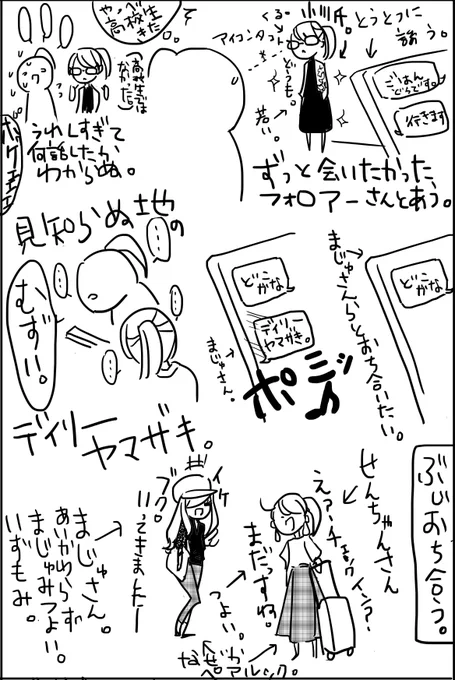 とうとつに
誘う。
ごはん
どうです。
行きます
くる。
アイコンタクト
どうも。
若い。
ずっと会いたかった、
フォロアーさんとあう。
高校生
きた
高校生では
なかった。
うれしすぎて
何話したか
わからぬ。
どこ
かな
まじゅさんらとおち合いたい。
どこ
かな
デイリー
ヤマザキ。
まじゅさん。
ポミッ♪
見知らぬ地の
むずい。
デイリー
ヤマザキ。
ぶじおち合う。
せんちゃんさん
えっ?チェックイン?
まだっすね。
つよい。
なぜか
ペアルック。
イケ
ブクロ
いってきましたー
まじゅさん。
あいかわらず
まじゅみつよい。
いずもみ。